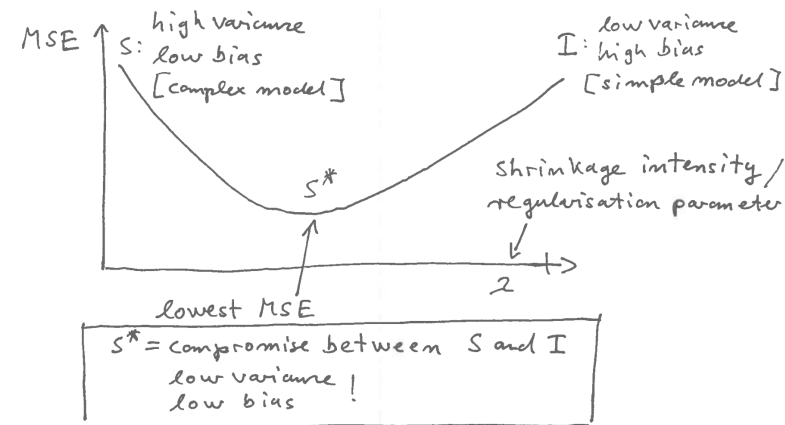 MSE
S: high variance
low bias
[complex model]
I: low variance
high bias
[simple model]
S*
shrinkage intensity/
regularisation parameter
λ
lowest MSE
S* = compromise between S and I
low variance
low bias !